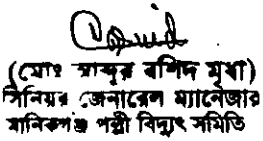 (মোঃ আব্দুর রশিদ মৃধা)
সিনিয়র জেনারেল ম্যানেজার
মানিকগঞ্জ পল্লী বিদ্যুৎ সমিতি